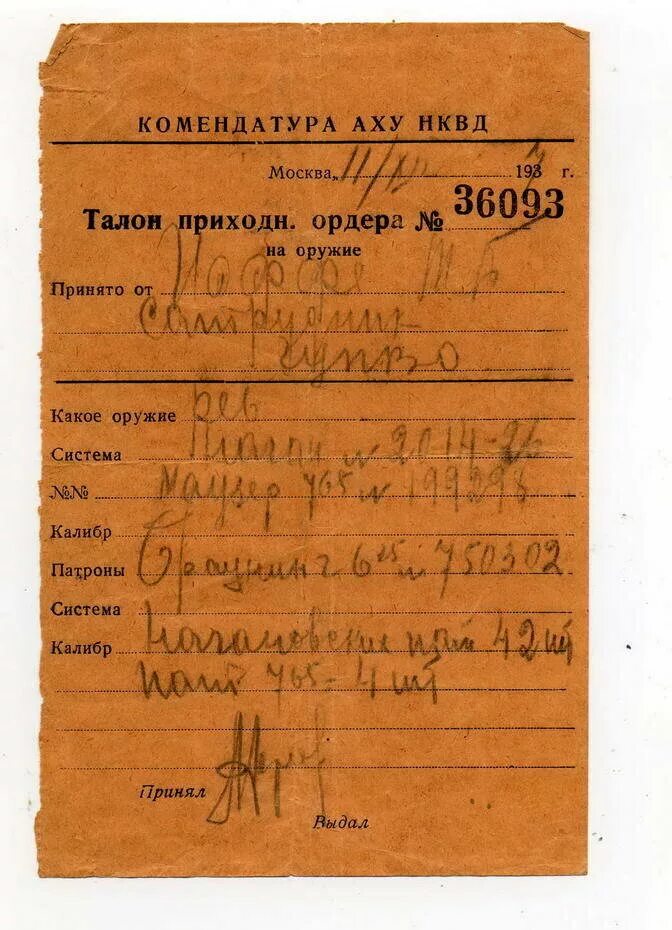 КОМЕНДАТУРА АХУ НКВД
Москва, 11/ 1937 г.
Талон приходн. ордера № 36093
на оружие
Принято от Иоффе
сотрудник
Какое оружие рев
Система Наган № 2014-26
№№ Маузер 765 № 199298
Калибр
Патроны Браунинг 625 № 750302
Система
Калибр Нагановские пат 42 шт
пат 765 - 4 шт
Принял
Выдал